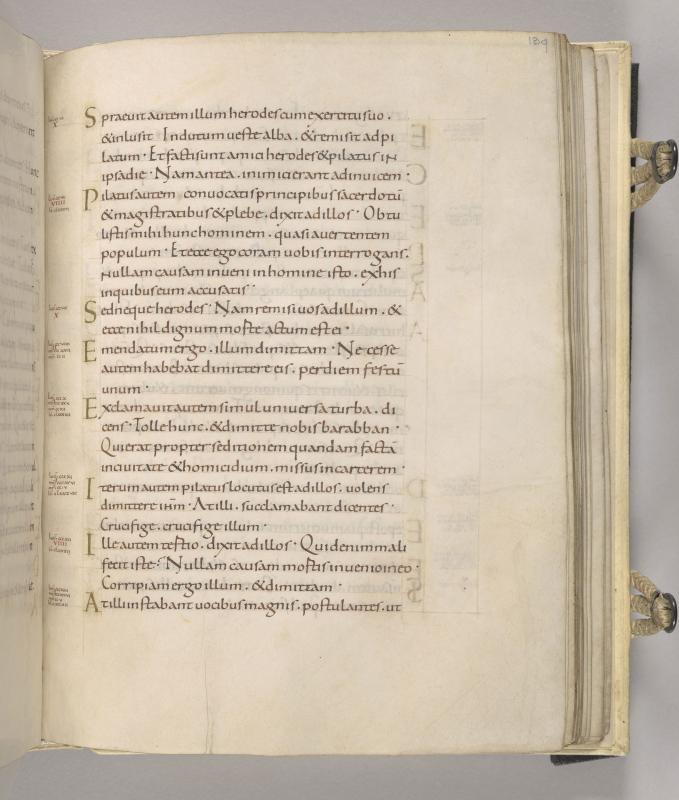 139
Spraeuit autem illum herodes cum exercitu suo .
&inlusit Indutum ueste alba . &remisit ad pi
latum · Et facti sunt amici herodes & pilatus IN
ipsa die · Nam antea . inimici erant ad inuicem ·
Pilatus autem conuocatis principibus sacerdotū
& magistratibus & plebe . dixit ad illos · Obtu
listis mihi hunc hominem . quasi auertentem
populum · Et ecce ego coram uobis interrogans .
Nullam causam inueni in homine isto . ex his
in quibus eum accusatis ·
Sed neque herodes · Nam remisi uos ad illum . &
ecce nihil dignum morte actum est ei ·
Emendatum ergo . illum dimittam · Necesse
autem habebat dimittere eis . per diem festū
unum ·
Exclamauit autem simul uniuersa turba . di
cens · Tolle hunc . & dimitte nobis barabban ·
Qui erat propter seditionem quandam factā
in ciuitate & homicidium . missus in carcerem ·
Iterum autem pilatus locutus est ad illos . uolens
dimittere ihm̄ · At illi . succlamabant dicentes ·
Crucifige . crucifige illum ·
Ille autem tertio . dixit ad illos · Quid enim mali
fecit iste · Nullam causam mortis inuenio in eo ·
Corripiam ergo illum . & dimittam ·
At illi instabant uocibus magnis . postulantes . ut